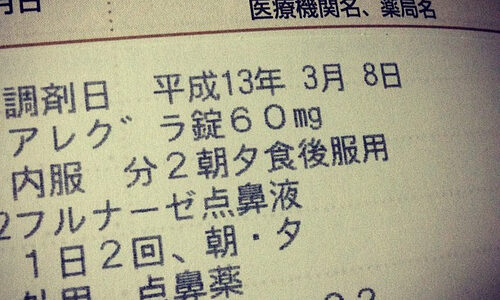 月日
医療機関名、薬局名
調剤日 平成13年 3月 8日
アレグラ錠60mg
内服 分2朝夕食後服用
2フルナーゼ点鼻液
1日2回、朝・夕
外用 点鼻薬